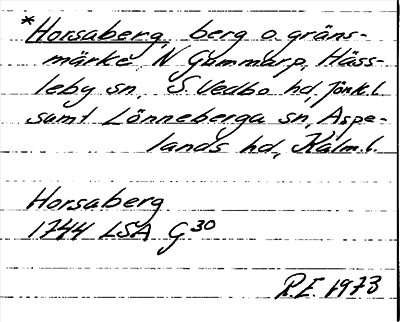 *Horsaberg, berg o. gräns-
märke, N Gummarp, Häss-
leby sn, S. Vedbo hd, Jönk.l.
samt Lönneberga sn, Aspe-
lands hd, Kalm.l.
Horsaberg
1744 LSA G30
R.E. 1973